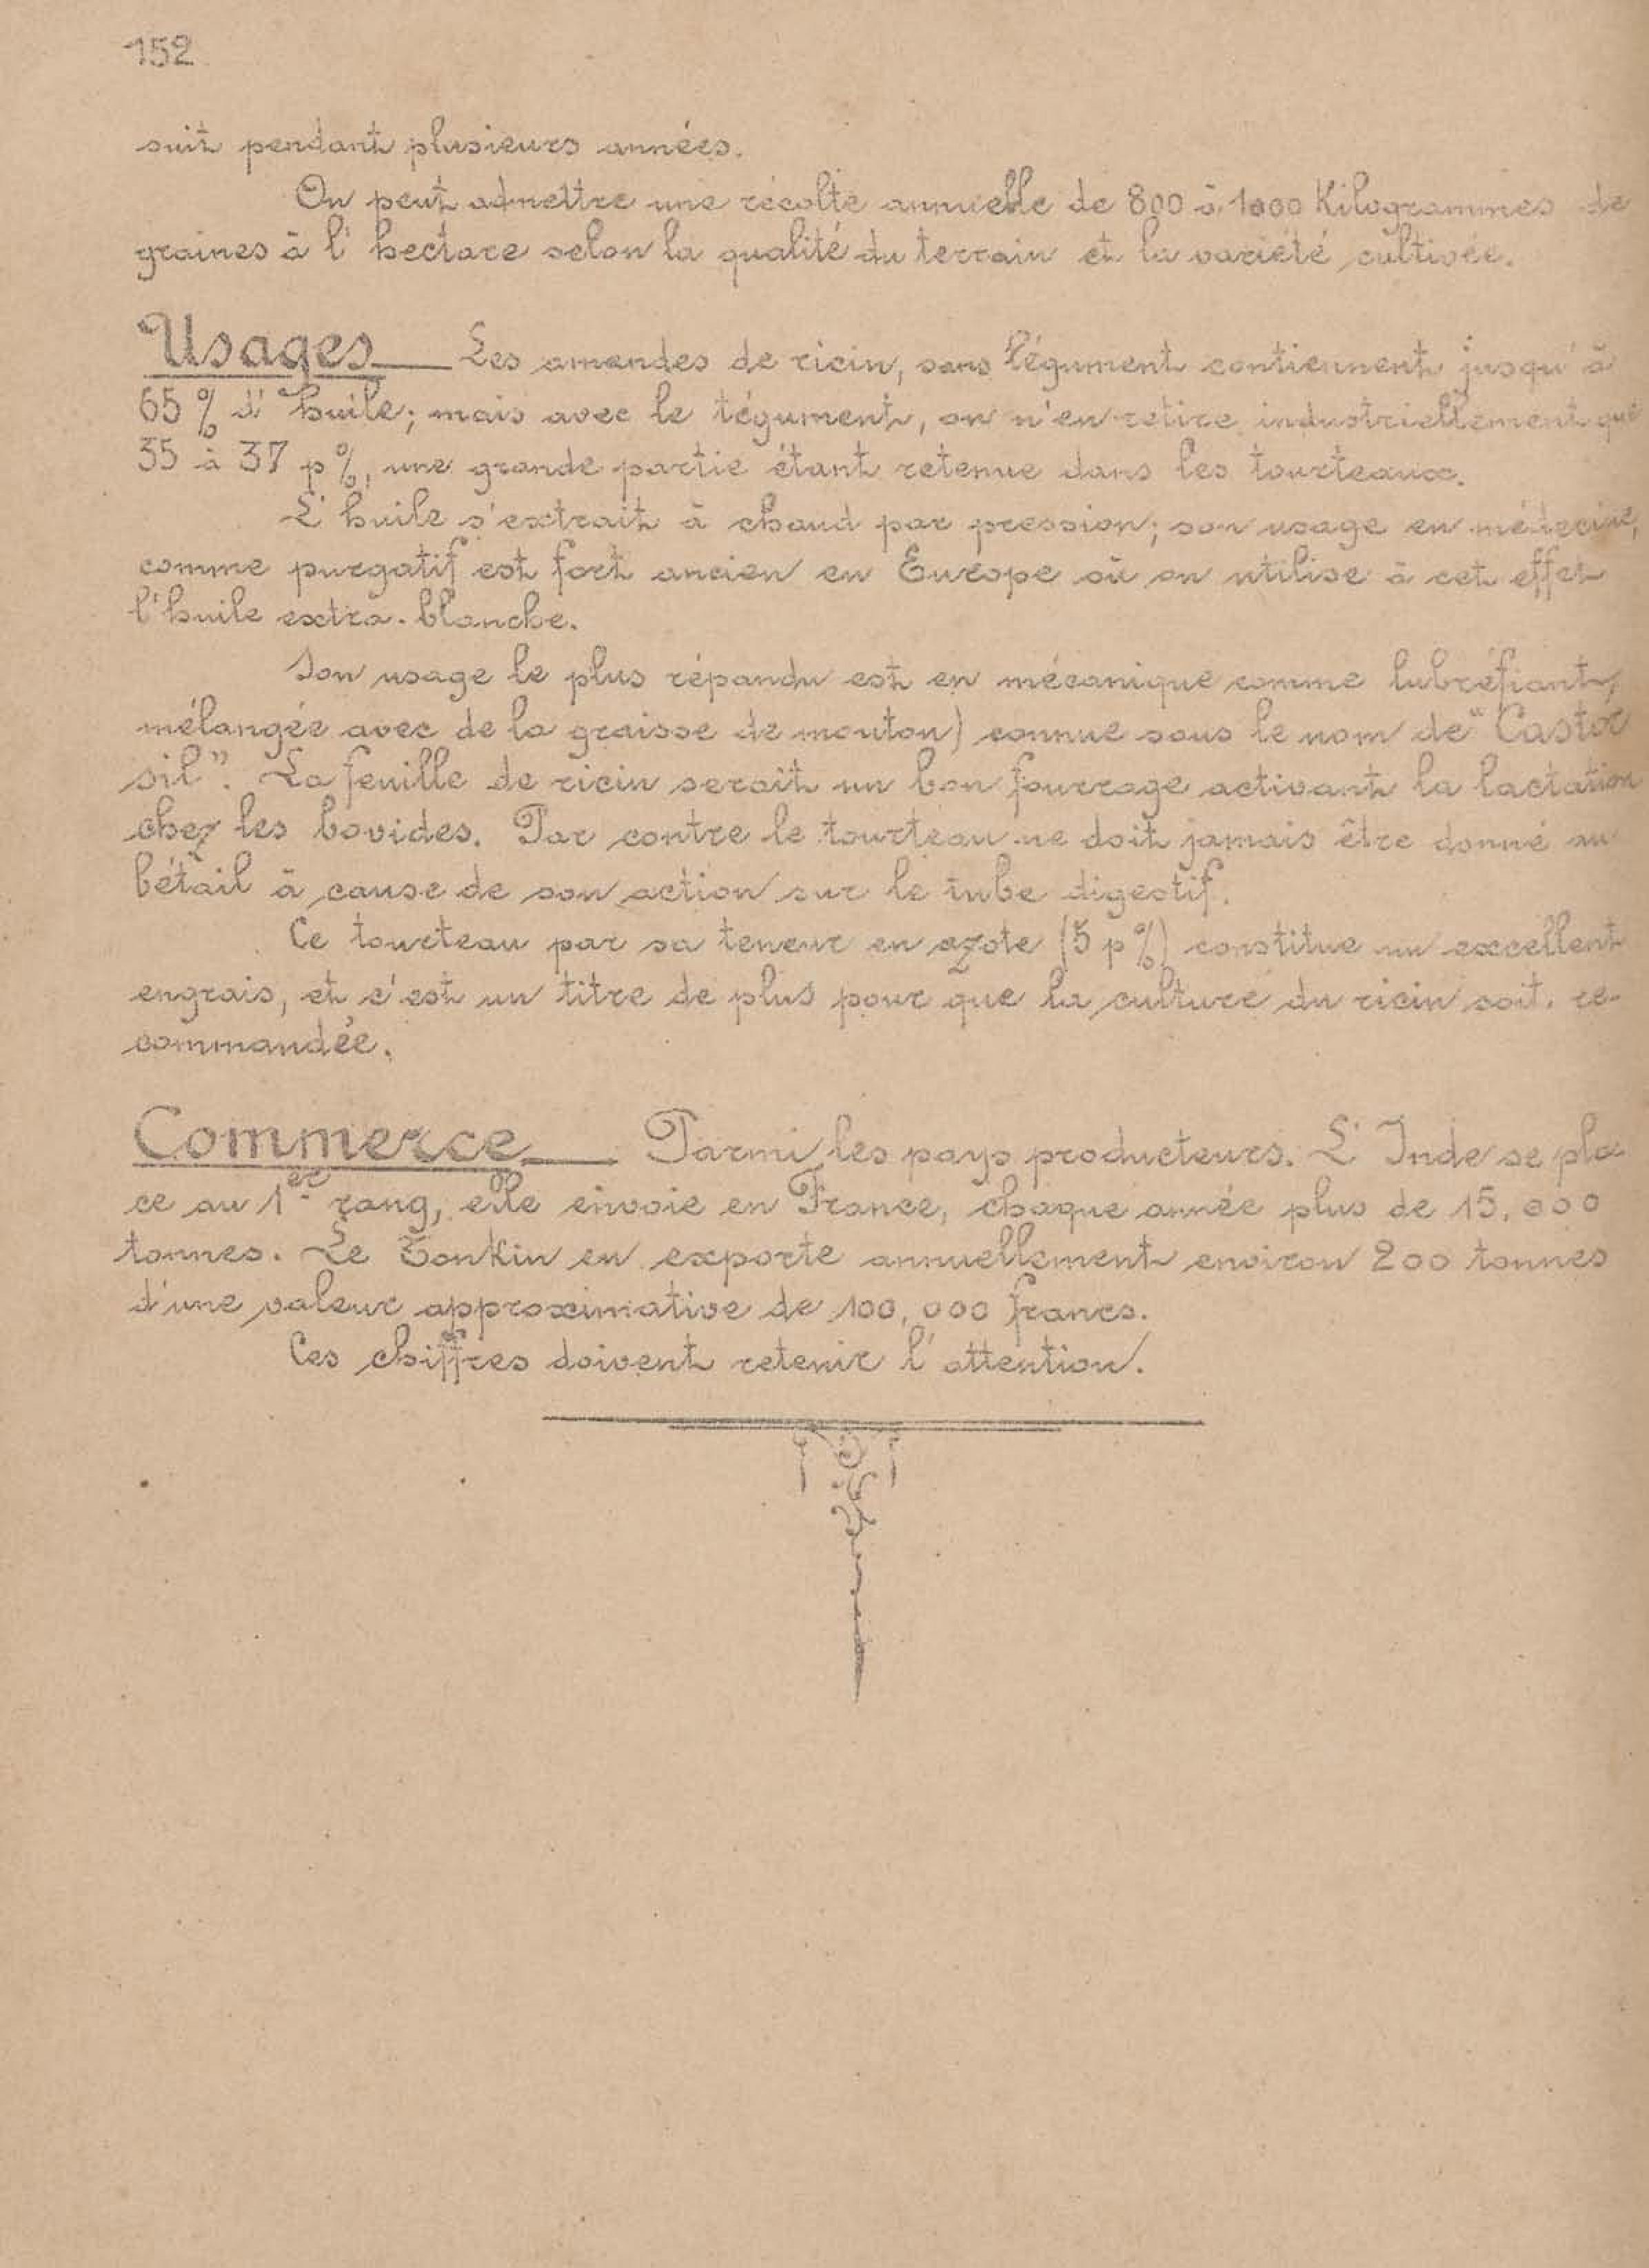 152
suit pendant plusieurs années.
On peut admettre une récolte annuelle de 800 à 1000 Kilogrammes de
graines à l'hectare selon la qualité du terrain et la variété cultivée.
Usages — Les amandes de ricin, sans tégument contiennent jusqu'à
65 % d'huile; mais avec le tégument, on n'en retire industriellement que
35 à 37 p %, une grande partie étant retenue dans les tourteaux.
L'huile s'extrait à chaud par pression; son usage en médecine,
comme purgatif est fort ancien en Europe où on utilise à cet effet
l'huile extra-blanche.
Son usage le plus répandu est en mécanique comme lubréfiant,
mélangée avec de la graisse de mouton) connue sous le nom de "Castor
oil". La feuille de ricin serait un bon fourrage activant la lactation
chez les bovides. Par contre le tourteau ne doit jamais être donné au
bétail à cause de son action sur le tube digestif.
Ce tourteau par sa teneur en azote (5 p %) constitue un excellent
engrais, et c'est un titre de plus pour que la culture du ricin soit re-
commandée.
Commerce — Parmi les pays producteurs. L'Inde se pla-
ce au 1er rang, elle envoie en France, chaque année plus de 15,000
tonnes. Le Tonkin en exporte annuellement environ 200 tonnes
d'une valeur approximative de 100,000 francs.
Ces chiffres doivent retenir l'attention.